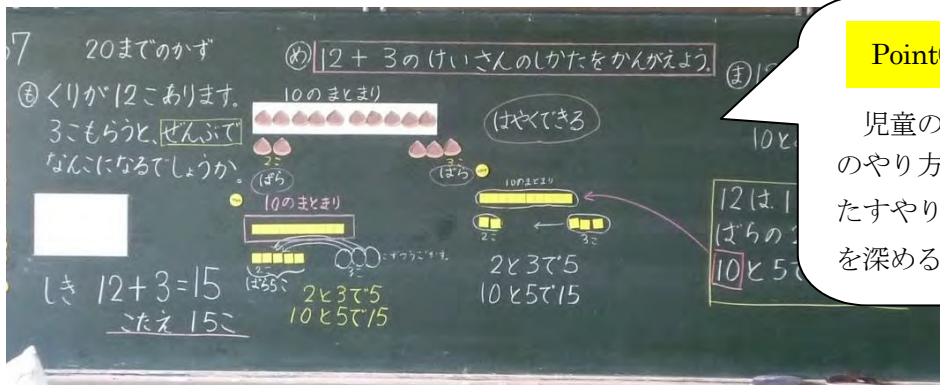 37
20までのかず
も くりが12こあります。
3こもらうと、ぜんぶで
なんこになるでしょうか。
しき 12+3=15
こたえ 15こ
め 12+3のけいさんのしかたをかんがえよう。
10のまとまり
2こ
ばら
3こ
ばら
10のまとまり
2こ
3こ
こずつうごかす。
ばら5こ
2と3で5
10と5で15
はやくできる
10のまとまり
2こ
3こ
2と3で5
10と5で15
ま
12は
ばらの
10と5で
Point
児童の
のやり方
たすやり
を深める